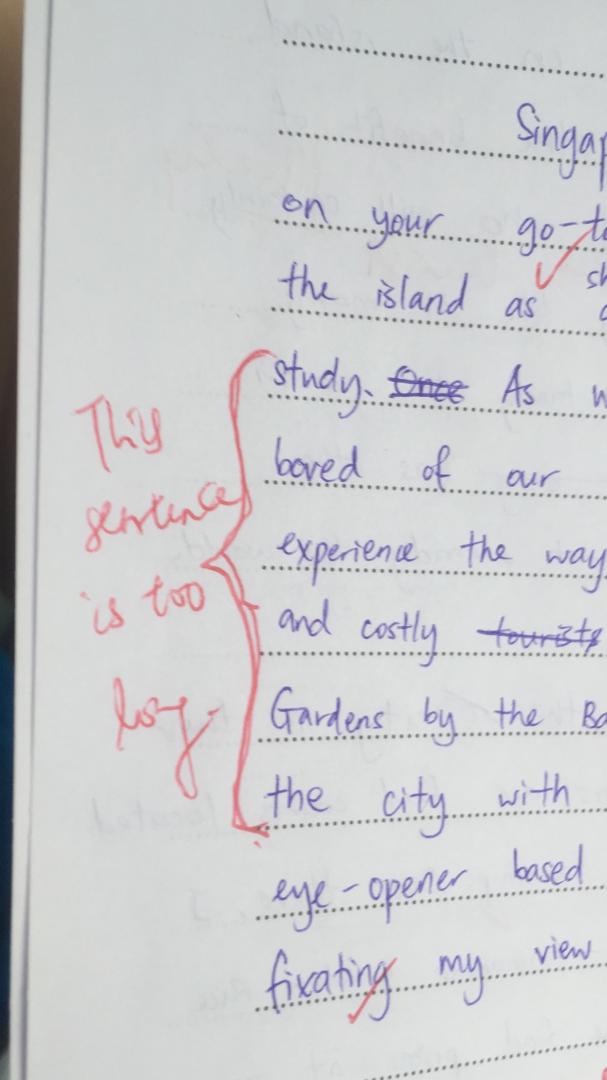 Singap
on your go-to
the island as
study. Once As w
bored of our
experience the way
and costly tourists
Gardens by the Ba
the city with
eye-opener based
fixating my view
This
sentence
is too
long.